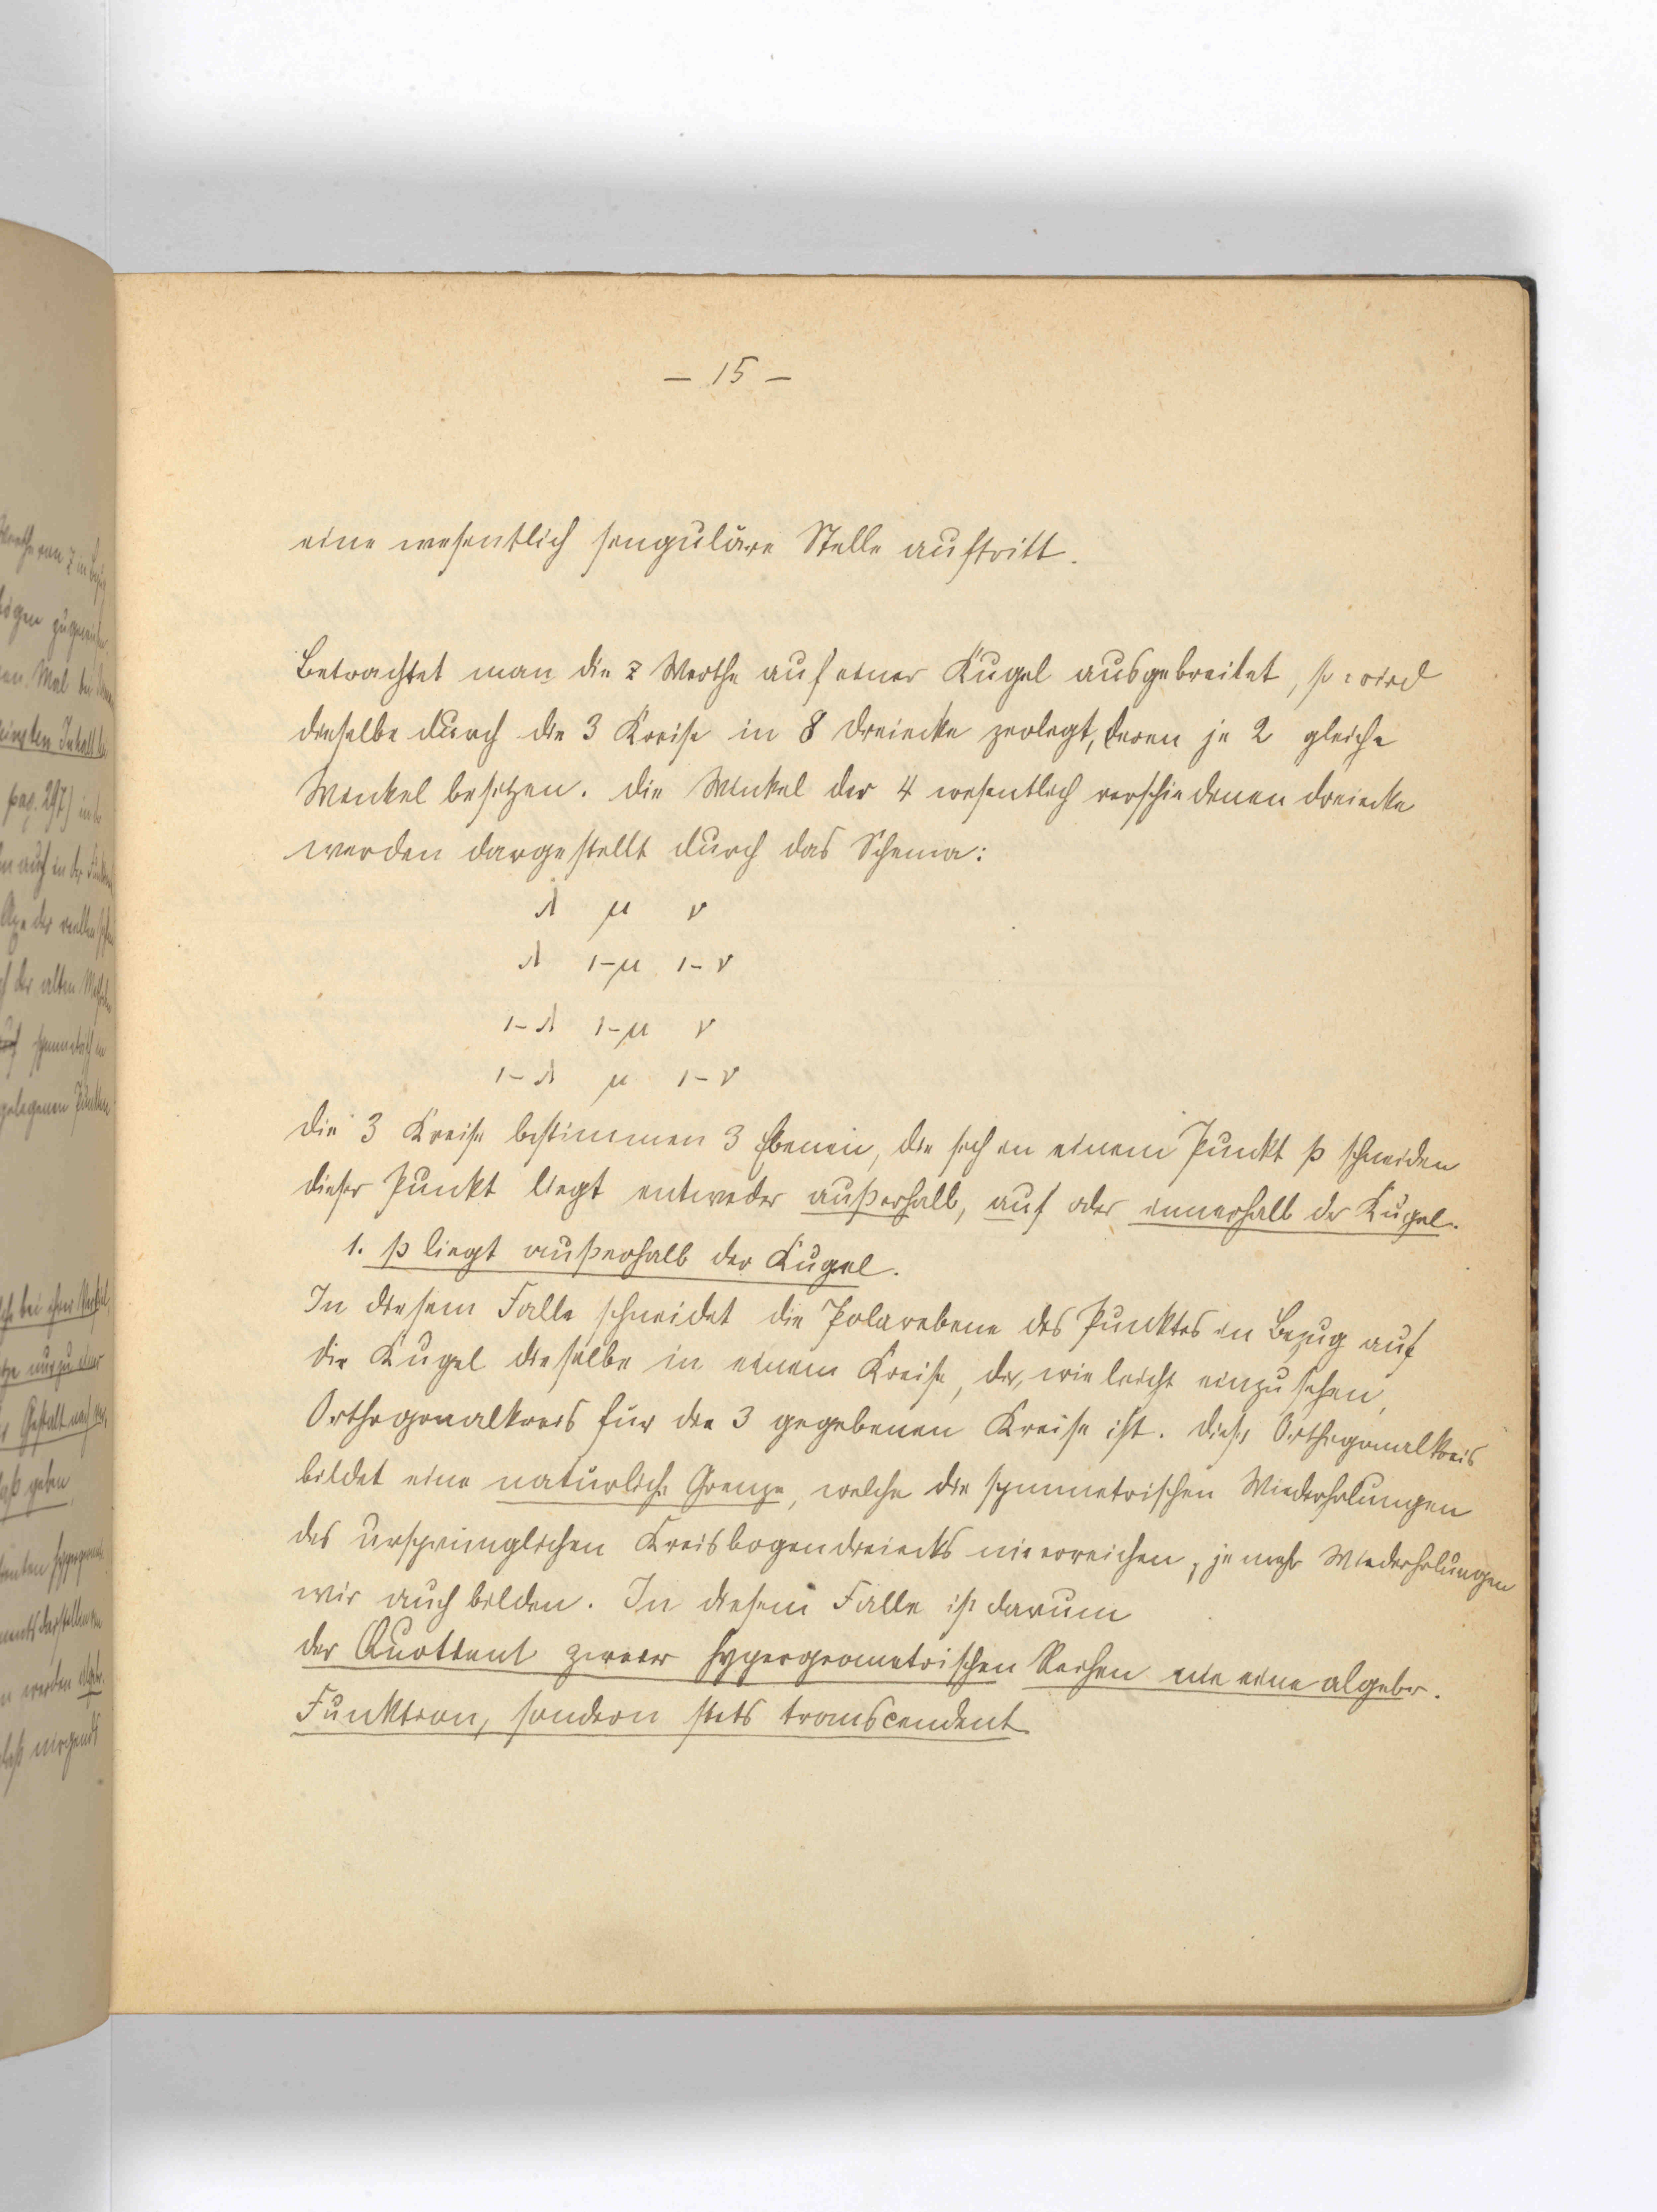 — 15 —
eine wesentlich singuläre Stelle auftritt.
Betrachtet man die z Werthe auf einer Kugel ausgebreitet, so wird
dieselbe durch die 3 Kreise in 8 Dreiecke zerlegt, deren je 2 gleiche
Winkel besitzen. Die Winkel der 4 wesentlich verschiedenen Dreiecke
werden dargestellt durch das Schema:
λ μ ν
λ 1-μ 1-ν
1-λ 1-μ ν
1-λ μ 1-ν
Die 3 Kreise bestimmen 3 Ebenen, die sich in einem Punkt p schneiden
dieser Punkt liegt entweder außerhalb, auf oder innerhalb der Kugel.
1. p liegt außerhalb der Kugel.
In diesem Falle schneidet die Polarebene des Punktes in Bezug auf
die Kugel dieselbe in einem Kreise, der, wie leicht einzusehen,
Orthogonalkreis für die 3 gegebenen Kreise ist. Dieser Orthogonalkreis
bildet eine natürliche Grenze, welche die symmetrischen Wiederholungen
des ursprünglichen Kreisbogendreiecks nie erreichen, je mehr Wiederholungen
wir auch bilden. In diesem Falle ist darum
der Quotient zweier hypergeometrischen Reihen nie eine algebr.
Funktion, sondern stets transcendent.